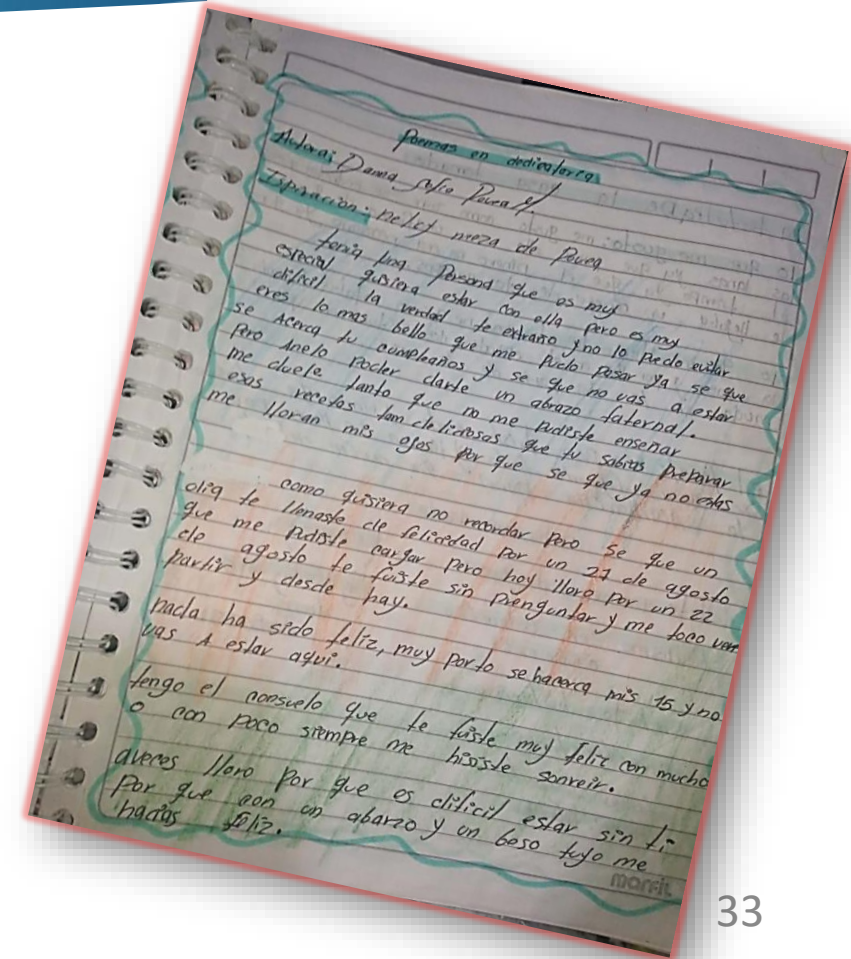 Poemas en dedicatorea
Autora: Danna Sofia Povea
Ispiracion: nelcy meza de Povea
tenia una Persona que es muy
especial quisiera estar con ella pero es muy
dificil la verdad te extraño y no lo puedo evitar
eres lo mas bello que me Pudo Pasar ya se que
se Acerca tu cumpleaños y se que no vas a estar
Pero Anelo Poder darte un abrazo faternal.
me duele tanto que no me Pudiste enseñar
esas recetas tam deliciosas que tu sabias Preparar
me lloran mis ojos Por que se que ya no estas
como quisiera no recordar Pero se que un
dia te llenaste de felicidad Por un 27 de agosto
que me Pudiste cargar Pero hoy lloro Por un 22
de agosto te fuiste sin Prenguntar y me toco verte
Partir y desde hay.
nada ha sido feliz, muy Porto se hacerca mis 15 y no
vas A estar aqui.
tengo el consuelo que te fuiste muy feliz con mucho
o con Poco siempre me hisiste sonreir.
aveces lloro Por que es dificil estar sin ti
Por que con un abarzo y un beso tuyo me
hacias feliz.
marfil
33